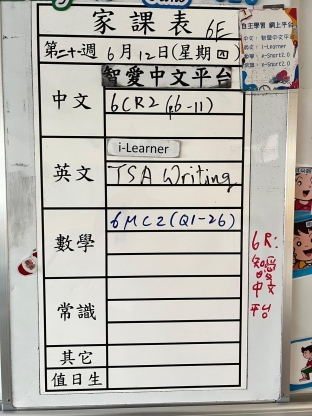 家課表 6E
第二十週 6月12日(星期四)
智愛中文平台
中文
6CR2 (p6-11)
i-Learner
英文
TSA Writing
6MC2(Q1-26)
數學
常識
其它
值日生
6R:
智愛
中文
平台
自主學習 網上平台
中文: 智愛中文平台
英文: i-Learner